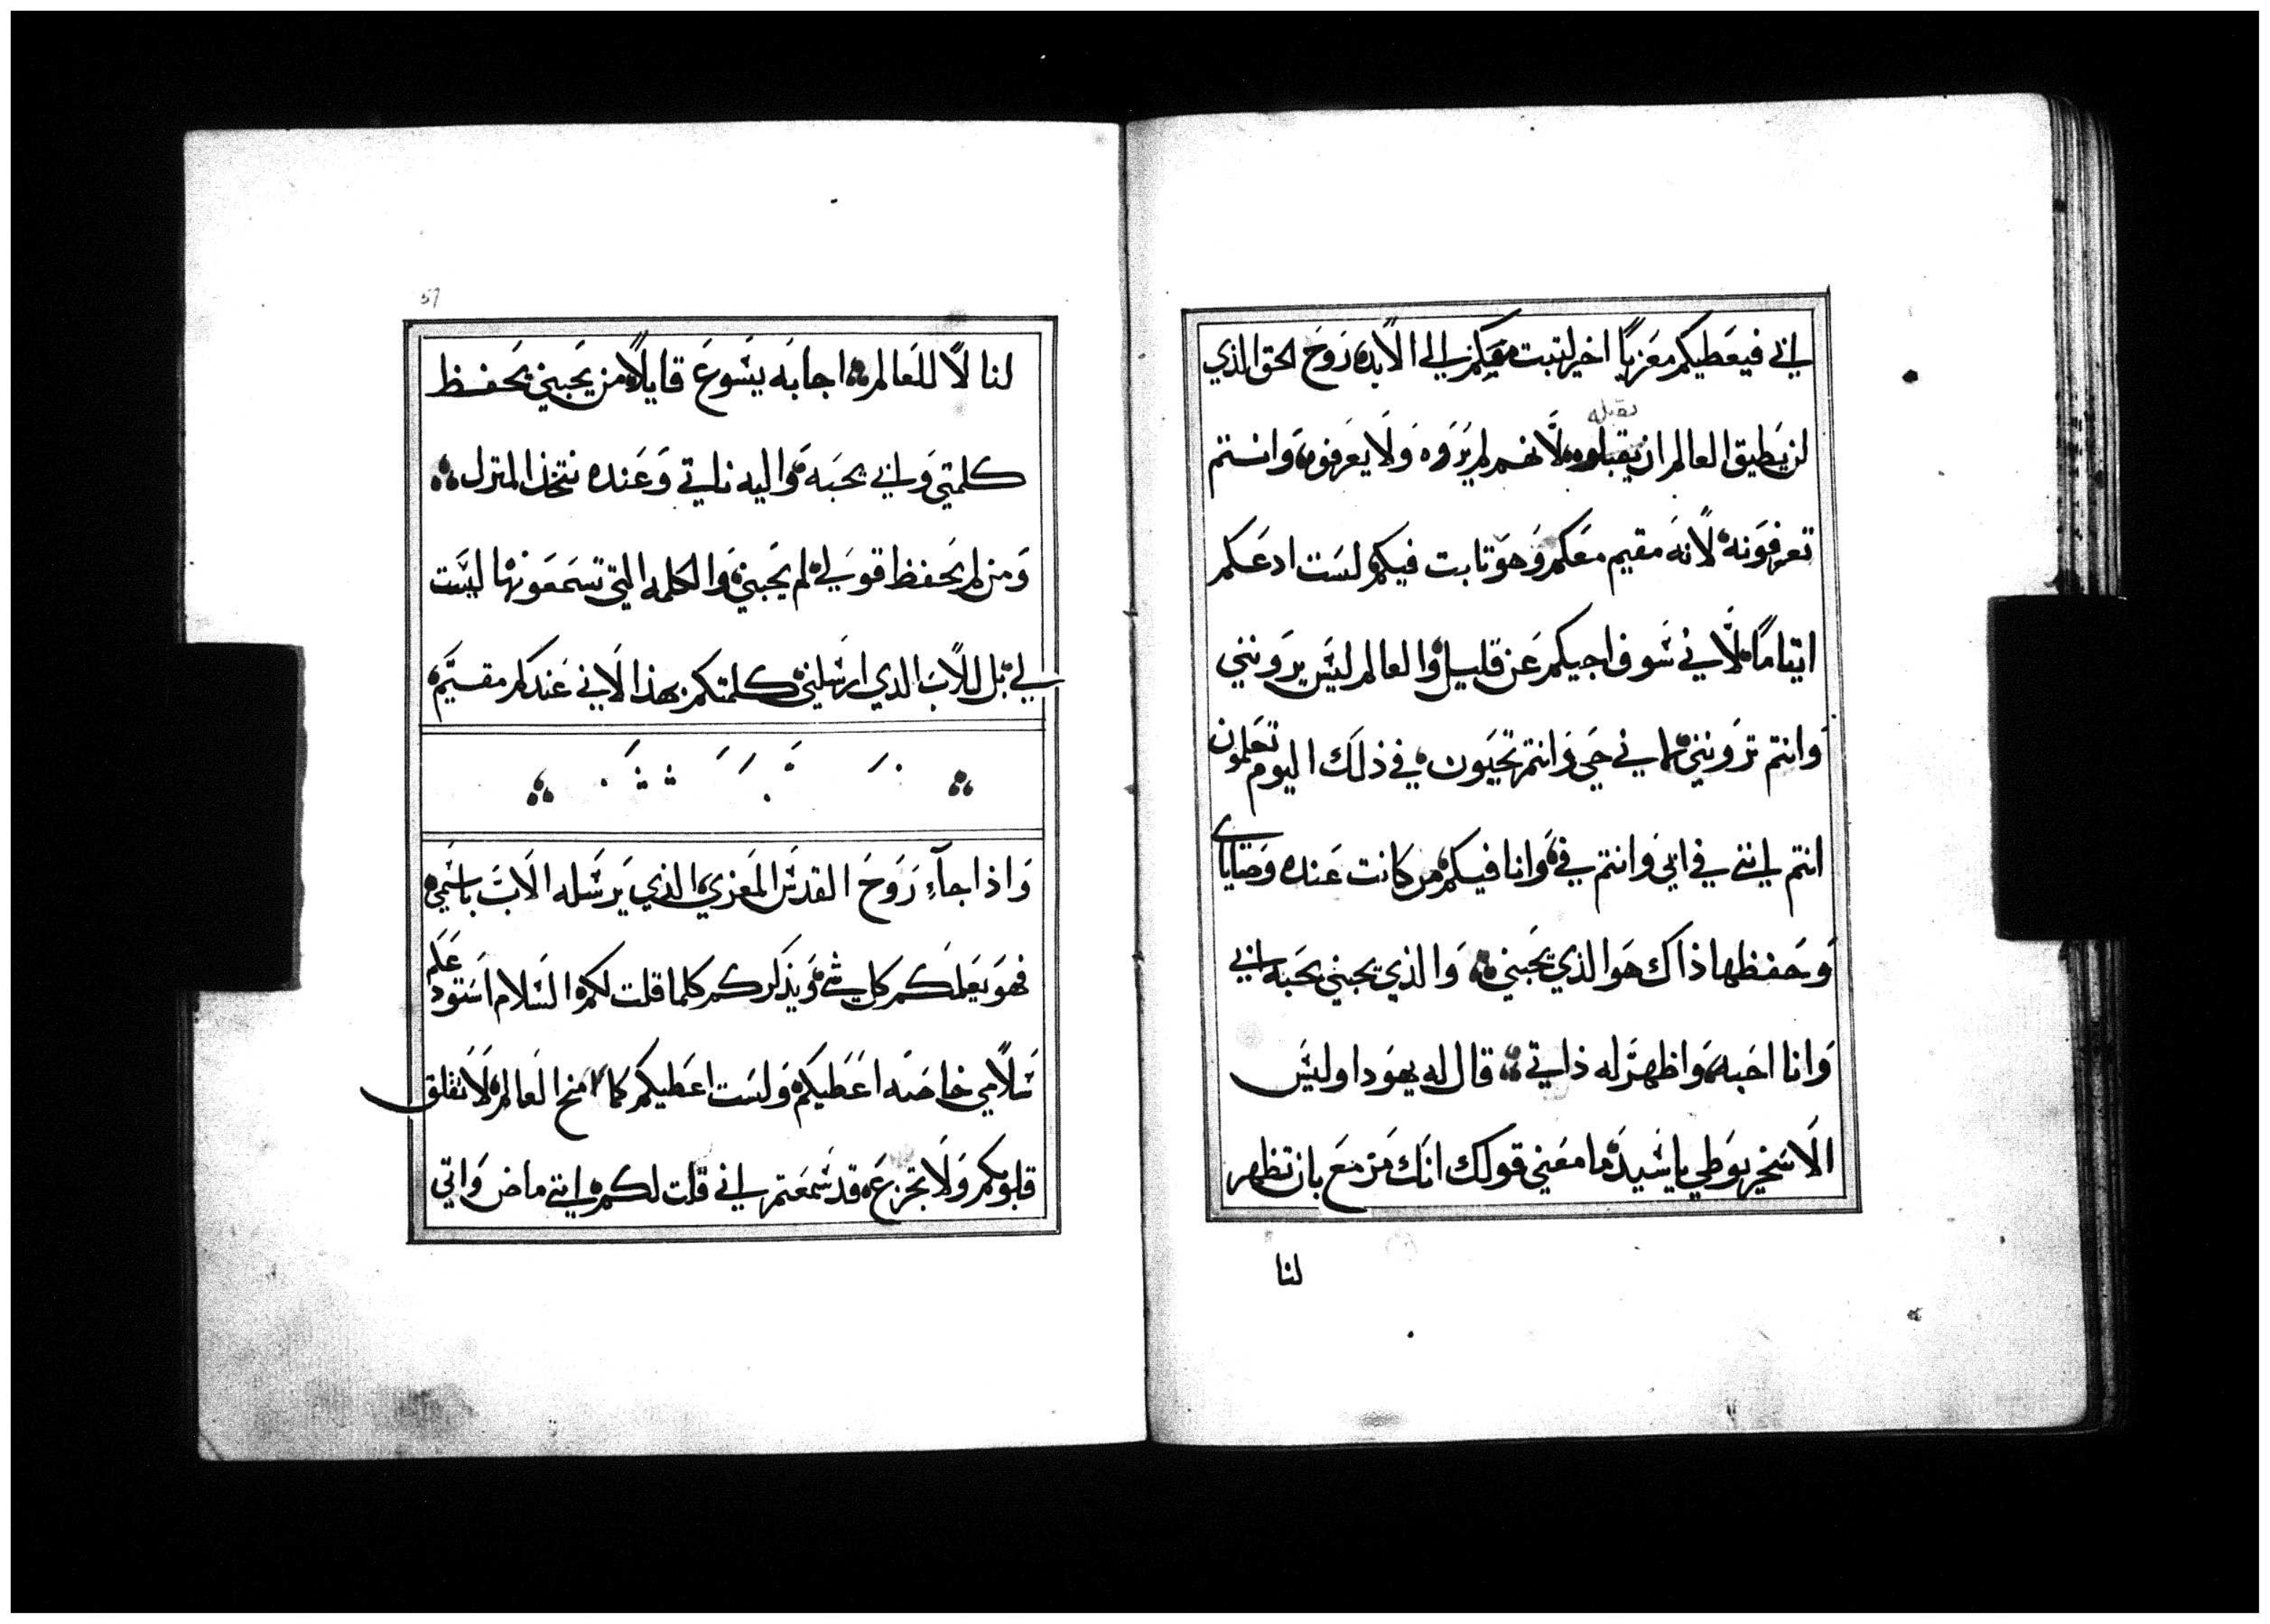 ابي فيعطيكم معزيا اخر ليتبت معكم الي الابد روح الحق الذي
لن يطيق العالم ان يقبلوه لانهم لم يروه ولا يعرفوه وانتم
تقبله
تعرفونه لانه مقيم معكم وهو تابت فيكم لست ادعكم
ايتاما لاني سوف اجيكم عن قليل والعالم ليس يرونني
وانتم ترونني لاني حي وانتم تحيون في ذلك اليوم تعلمون
انتم انني في ابي وانتم في وانا فيكم من كانت عنده وصاياي
وحفظها ذاك هو الذي يحبني والذي يحبني يحبه ابي
وانا احبه واظهر له ذاتي قال له يهودا وليس
الاسخريوطي يا سيد ما معني قولك انك مزمع بان تظهر
لنا
57
لنا لا للعالم اجابه يسوع قايلا من يحبني يحفظ
كلمتي وابي يحبه واليه ناتي وعنده نتخذ المنزل
ومن لم يحفظ قولي لم يحبني والكلمه التي تسمعونها ليست
لي بل للاب الذي ارسلني كلمتكم بهذا لاني عندكم مقيم
واذا جآء روح القدس المعزي الذي يرسله الاب باسمي
فهو يعلمكم كل شي ويذكركم كلما قلت لكم السلام استودعكم
سلامي خاصه اعطيكم ولست اعطيكم كما منح العالم لا تقلق
قلوبكم ولا تجزع قد سمعتم اني قلت لكم انني ماض واتي